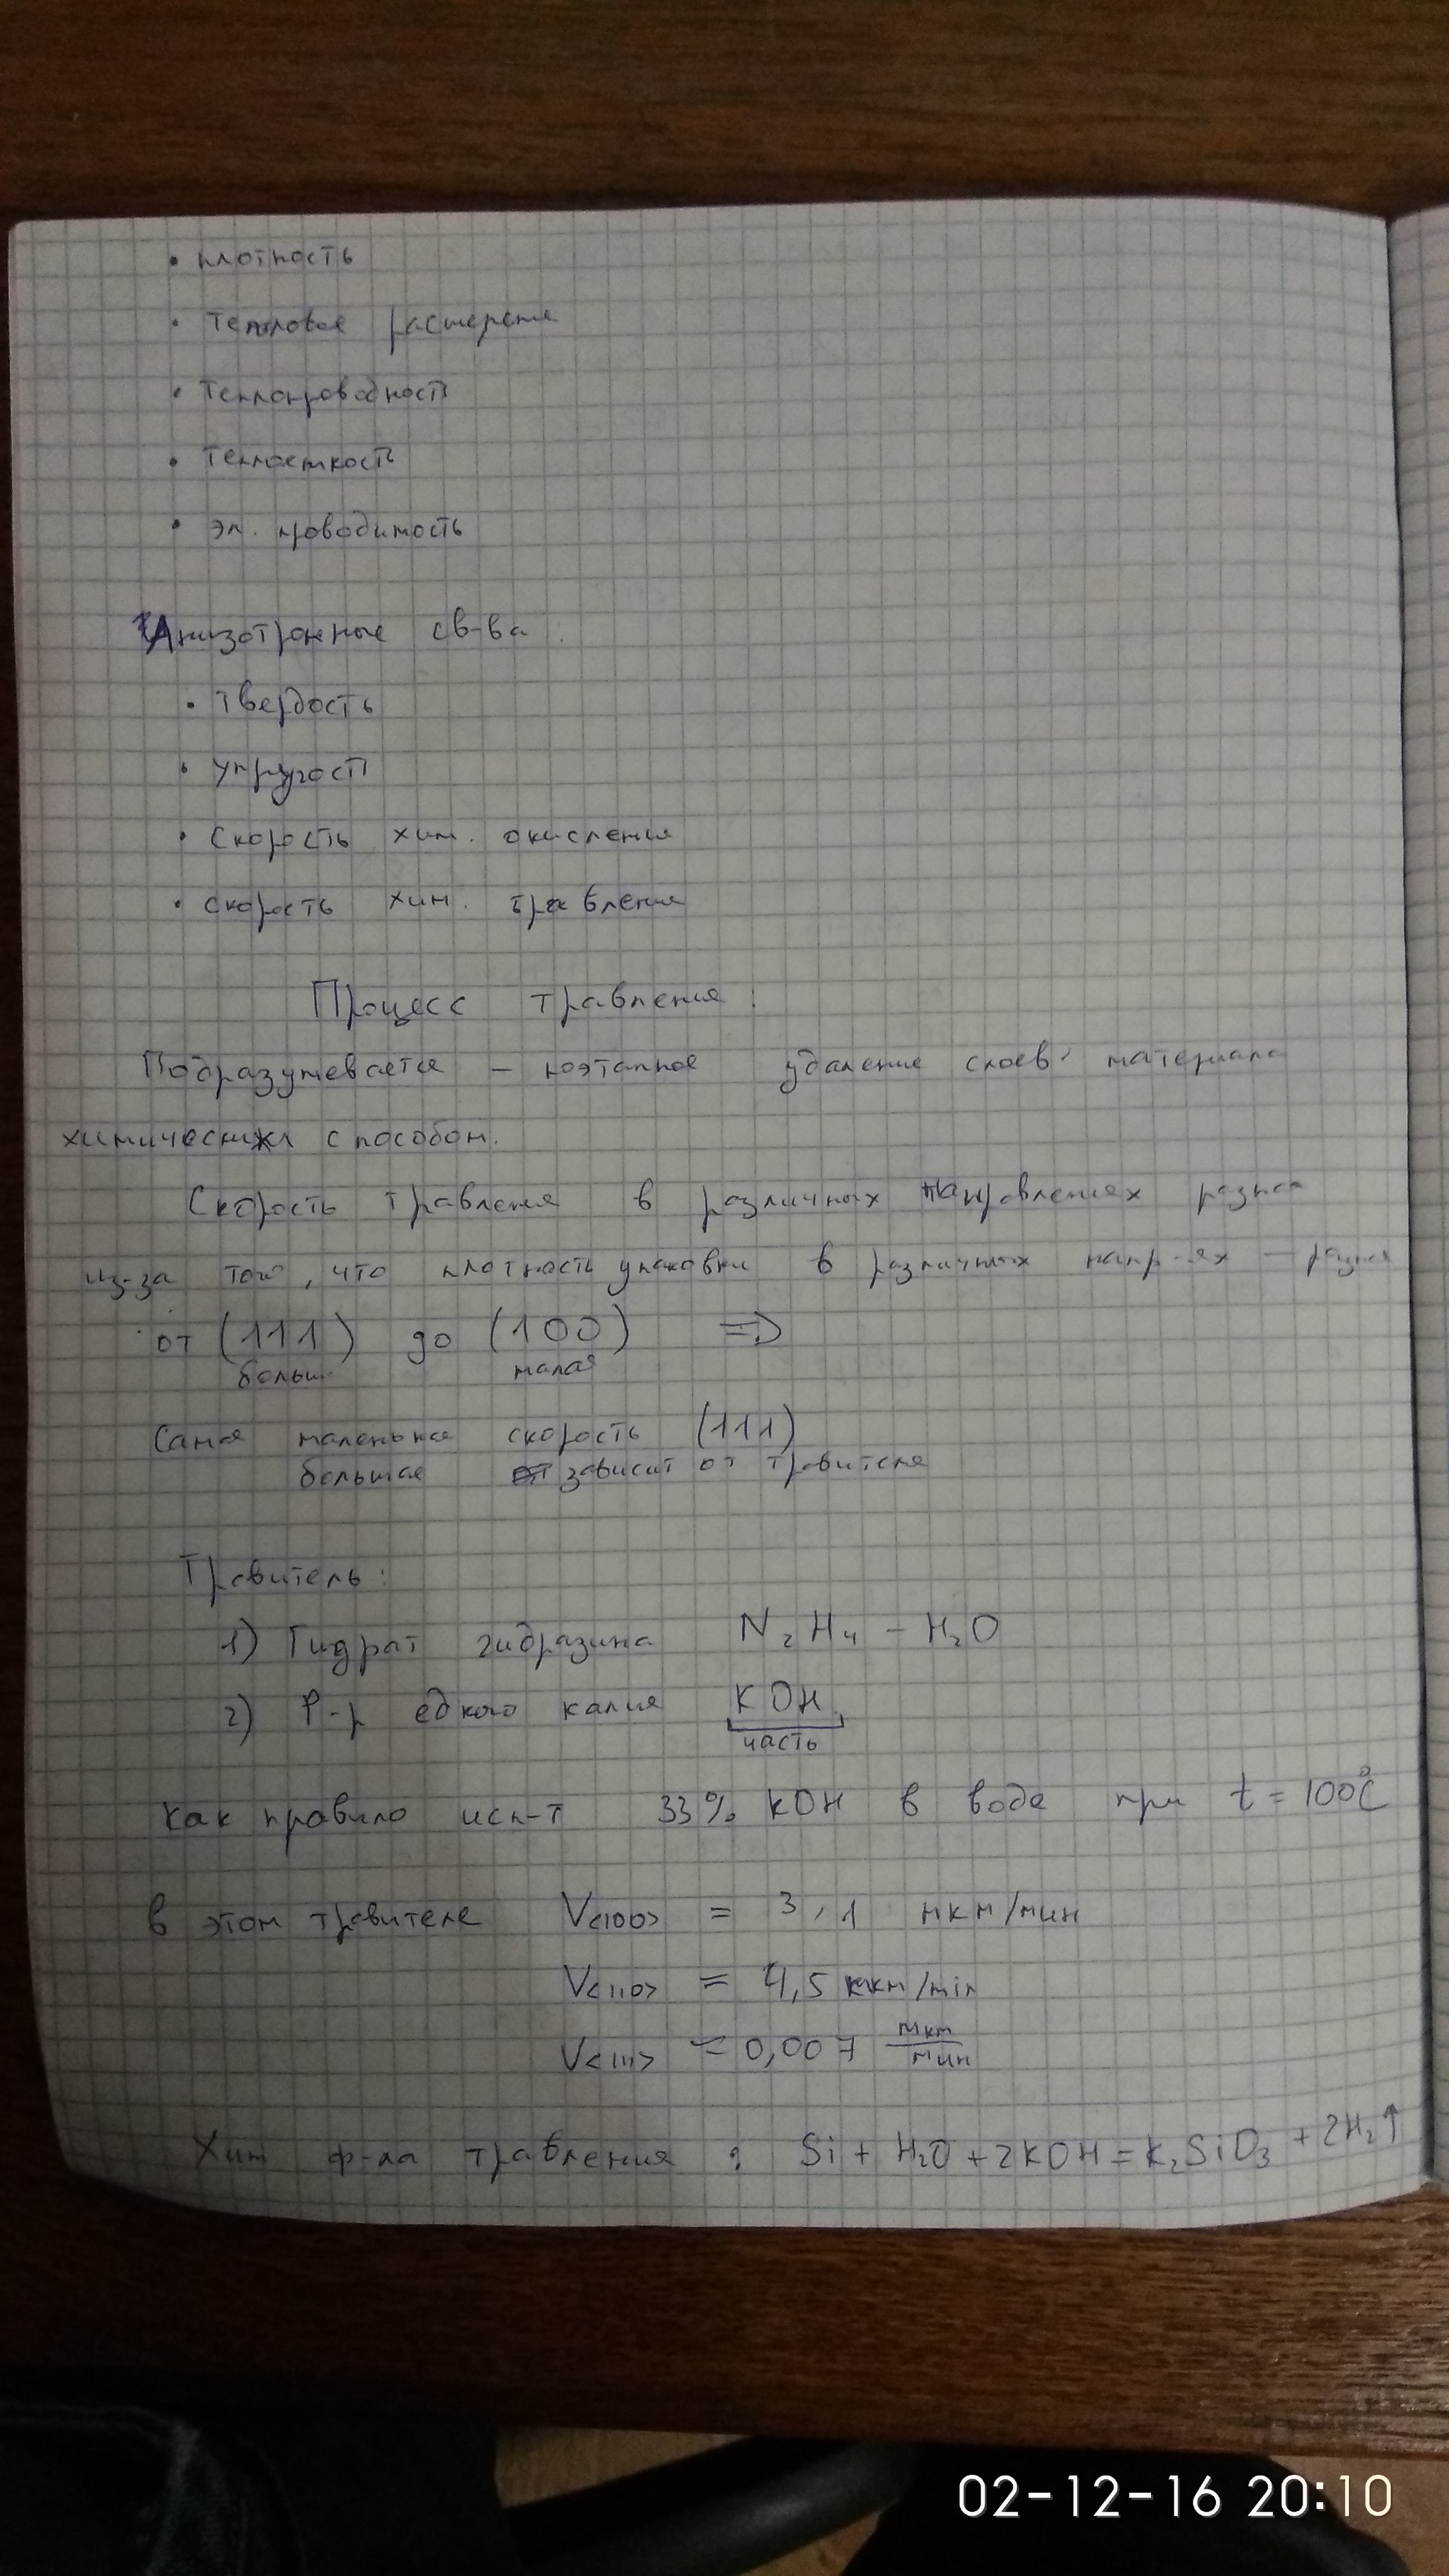 • плотность
• Тепловое расширение
• Теплопроводность
• Теплоемкость
• эл. проводимость
Анизотропные св-ва:
• Твердость
• упругость
• Скорость хим. окисления
• скорость хим. травления
Процесс травления:
Подразумевается — поэтапное удаление слоев материала
химическим способом.
Скорость травления в различных направлениях разная
из-за того, что плотность упаковки в различных напр-ях – разная
от (111) до (100) =>
больш. малая
Самая маленькая скорость (111)
большая зависит от травителя
Травитель:
1) Гидрат гидразина N₂H₄ – H₂O
2) Р-р едкого калия KOH
часть
Как правило исп-т 33% KOH в воде при t = 100°C
в этом травителе V<100> = 3,1 мкм/мин
V<110> = 4,5 мкм/min
V<111> = 0,007 мкм/мин
Хим ф-ла травления : Si + H₂O + 2KOH = K₂SiO₃ + 2H₂↑
02-12-16 20:10